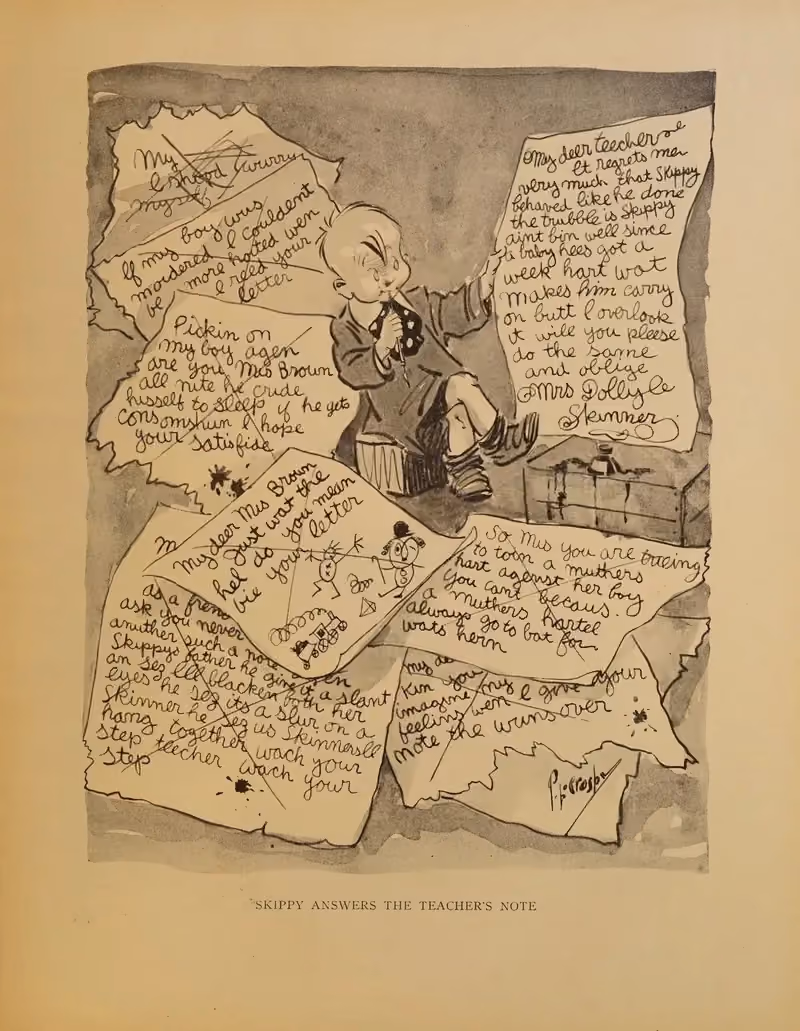 My
I shood wurry
myself
If my boy was
moidered I couldent
be more hoited wen
I reed your
letter
Pickin on
my boy agen
are you, Mis Brown
all nite he cride
hisself to sleep if he gets
consomshun I hope
your satisfide
My deer teecher
It regrets me
very much that Skippy
behaved like he done
the trubble is Skippy
aint bin well since
a baby hees got a
week hart wot
makes him carry
on butt I overlook
it will you pleese
do the same
and oblige
Mrs Dolly
Skinner
My deer Mis Brown
Just wat the
hel do you mean
bie your letter
So Mis you are trieing
to toin a muthers
hart agenst her boy
you cant becaus.
a muthers hartel
always go to bat for
wats hern
as a frend
ask you never
anuther such a note
Skippys father he give it a slant
an sez Ill blacken both her
eyes he sez its a slur on a
Skinner he sez us Skinnersll
hang together wach your
step teecher wach your
step
my de
Kin you
imagine my
feelins wen I give your
note the wuns over
P.L. Crosby
SKIPPY ANSWERS THE TEACHER'S NOTE